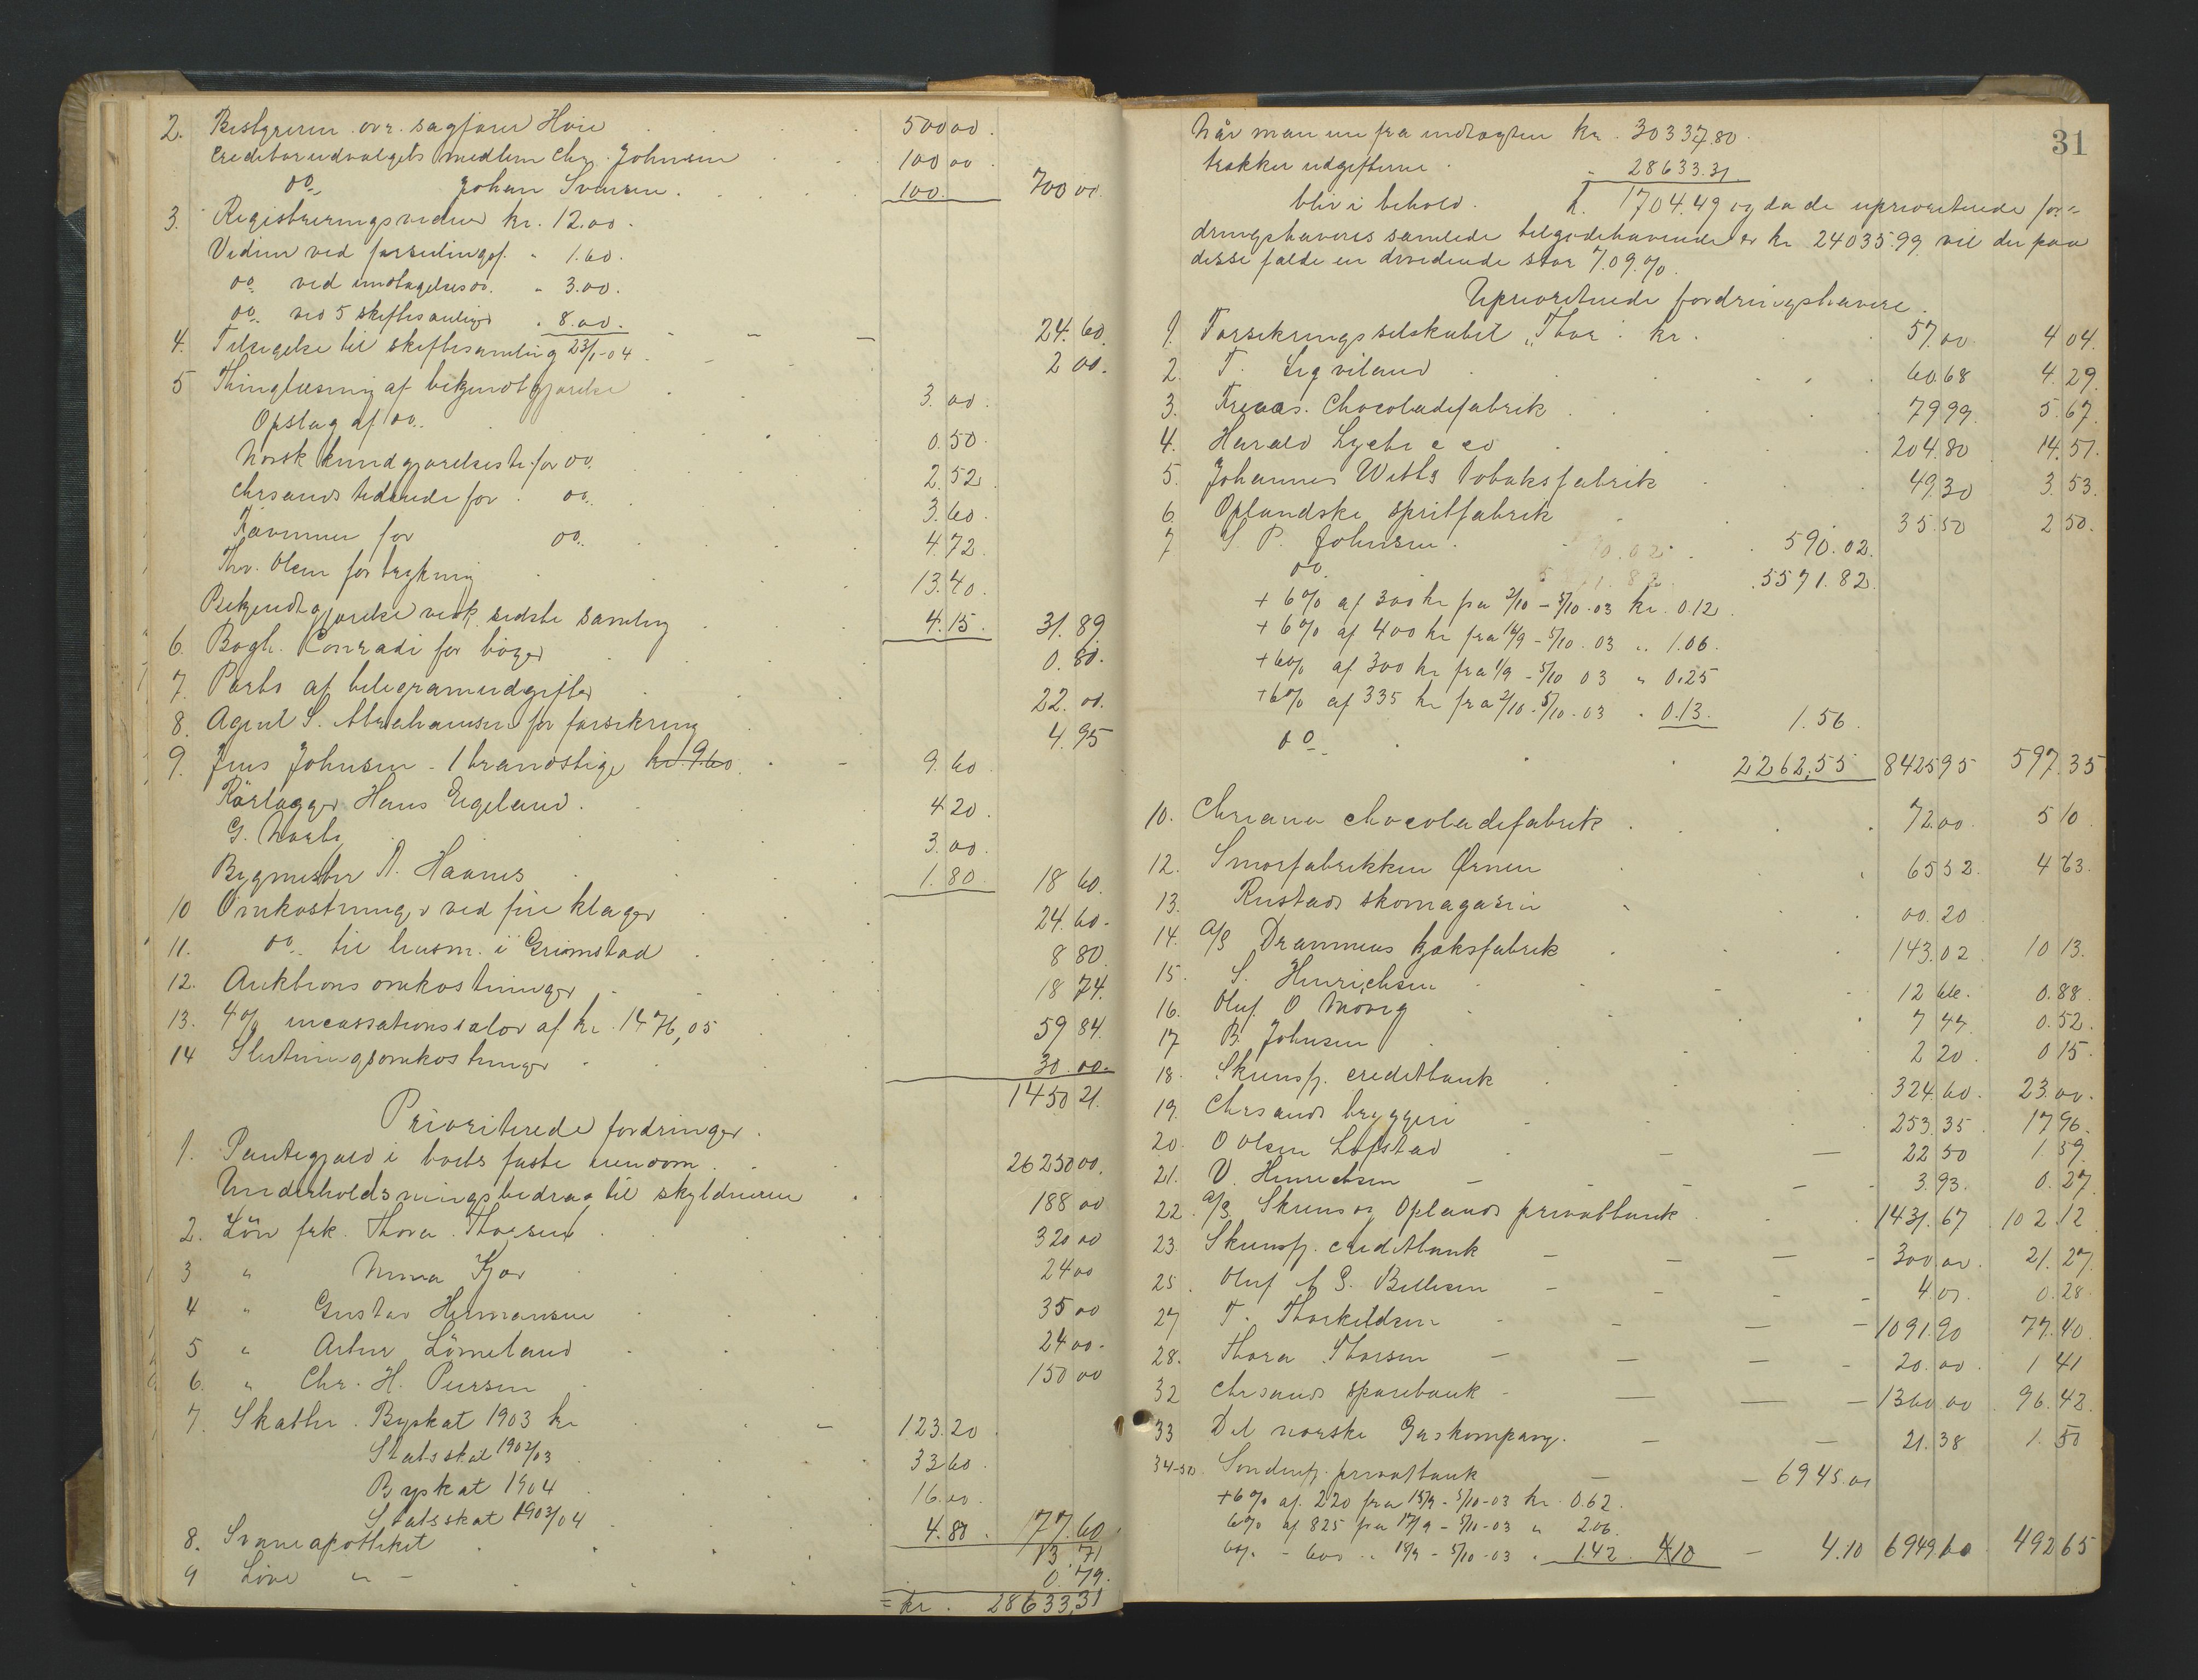 2. Bestyreren ovr. sagfører Hoie 500 00.
Creditorudvalgets medlem Chr. Johnsen 100 00
do. Johan Svensen. 100. 700 00.
3. Registreringsvidner kr. 12.00.
Vidner ved forseilingsf. " 1.60.
do. ved modtagelsesov. " 3.00.
do. ved 5 skiftesamlinger " 8.00. 24.60.
4. Tilsigelse til skiftesamling 23/1-04 2 00.
5 Thinglæsning af bekjendtgjørelse 3. 00.
Opslag af do. 0.50.
Norsk kundgjørelsesti. for do. 2.52.
Chrsands tidende for do. 3.60.
Tavunur for do. 4.72.
Thv. Olsen for trykning 13.40.
Bekjendtgjørelse vedk. sidste samling 4.15. 31.89.
6. Bogh. Conradi for bøger 0.80.
7. Porto af telegramudgifter 22.00.
8. Agent S. Abrahamsen for forsikring 4.95
9. Jens Johnsen - 1 brandstige kr. 9.60 9.60
Rørlægger Hans Eigeland. 4.20
G. Norby 3.00.
Bygmester A. Haanes 1.80. 18 60.
10 Omkostninger ved fire klager 24.60.
11. do. til husm. i Grimstad 8 80.
12. Auktions omkostninger 18 74.
13. 4% incassationssalær af kr. 1476,05 59 84.
14 Slutningsomkostninger 30.00.
1450 21.
Prioriterede fordringer.
1. Pantegjæld i boets faste eiendom. 26250 00.
Underholdsningsbidrag til skyldneren 188 00
2. Løn frk. Thora Thorsen 320 00
3 " Anna Kjær 24 00
4 " Gustav Hermansen 35 00
5 " Artur Lømeland 24 00.
6. " Chr. H. Peersen 150 00
7. Skatter. Byskat 1903 kr 123.20
Statsskat 1902/03 33 60.
Byskat 1904 16.00.
Statsskat 1903/04 4.80. 177.60
8. Svaneapotheket 13.71
9 Løve " - 0.79.
= kr. 28633,31
31
Når man nu fra indtægten kr. 30337.80.
trækker udgifterne " 28633.31.
blir i behold. k. 1704.49 og da de uprioriterede for-
dringshaveres samlede tilgodehavende er kr 24035.99 vil der paa
disse falde en dividende stor 7.09.%.
Uprioriterede fordringshavere.
1. Forsikringsselskabet "Thor": kr. 57.00 4 04.
2. T. Ligviland 60.68 4.29.
3. Freias. Chocoladefabrik 79 99. 5.67.
4. Harald Lyche & co 204.80 14.51.
5. Johannes Withs Tobaksfabrik 49.30 3.53.
6. Oplandske spritfabrik 35.50 2 50.
7 S. P. Johnsen. 590.02.
do. 5571.82.
+ 6% af 300 kr fra 2/10 - 5/10.03 kr. 0.12.
+ 6% af 400 kr fra 16/9 - 5/10.03 " 1.06.
+ 6% af 300 kr fra 1/9 - 5/10 03 " 0.25
+ 6% af 335 kr fra 2/10 - 5/10.03 " 0.13. 1.56.
do. 2262,55 8425 95 597.35
10. Chriania chocoladefabrik 72.00. 5 10.
12. Smørfabrikken Ørnen 65 52. 4 63.
13. Rustads skomagasin 00.20
14. A/S Drammens kjæksfabrik 143.02 10 13.
15. S. Hinrichsen 12 44. 0.88.
16. Oluf O Moorg 7 44. 0.52.
17 B. Johnsen 2 20. 0 15.
18. Skiensfj. creditbank 324.60. 23.00.
19. Chrsands bryggeri 253.35. 17 96.
20. O Olsen Lofstad 22 50 1.59.
21. V. Hinrichsen 3.93. 0.27.
22. A/S. Skiens og Oplands privatbank 1431.67 102.12
23. Skiensfj. creditbank 300.00. 21.27
25. Oluf A S. Bettesen 4.00. 0.28
27 T. Thorkildsen 1091.90 77.40.
28. Thora Thorsen 20.00. 1 41
32 Chrsands sparebank 1360.00. 96.42.
33 Det norske Gaskompany. 21.38 1.50
34-50. Søndenfj. privatbank 6945.00
+6% af. 220 fra 18/9 - 5/10-03 kr. 0.62.
6% af 825 fra 17/9 - 5/10-03 " 2.06.
6% - 600 " 18/9 - 5/10-03 " 1.42. 4.10 - 4.10 6949.60 492 65